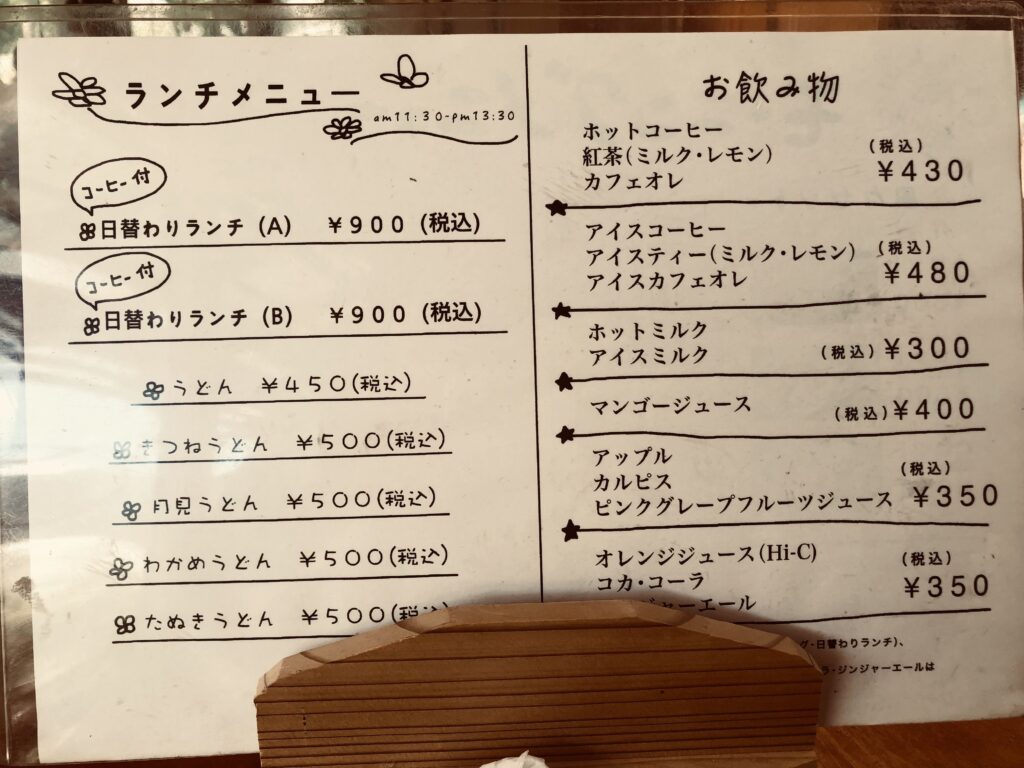 ランチメニュー
am11:30-pm13:30
コーヒー付
日替わりランチ (A) ¥900 (税込)
コーヒー付
日替わりランチ (B) ¥900 (税込)
うどん ¥450(税込)
きつねうどん ¥500(税込)
月見うどん ¥500(税込)
わかめうどん ¥500(税込)
たぬきうどん ¥500(税込
お飲み物
ホットコーヒー
紅茶(ミルク・レモン)
カフェオレ
(税込)
¥430
アイスコーヒー
アイスティー(ミルク・レモン)
アイスカフェオレ
(税込)
¥480
ホットミルク
アイスミルク
(税込)¥300
マンゴージュース
(税込)¥400
アップル
カルピス
ピンクグレープフルーツジュース
(税込)
¥350
オレンジジュース(Hi-C)
コカ・コーラ
ジャーエール
(税込)
¥350
グ・日替わりランチ)、
ラ・ジンジャーエールは